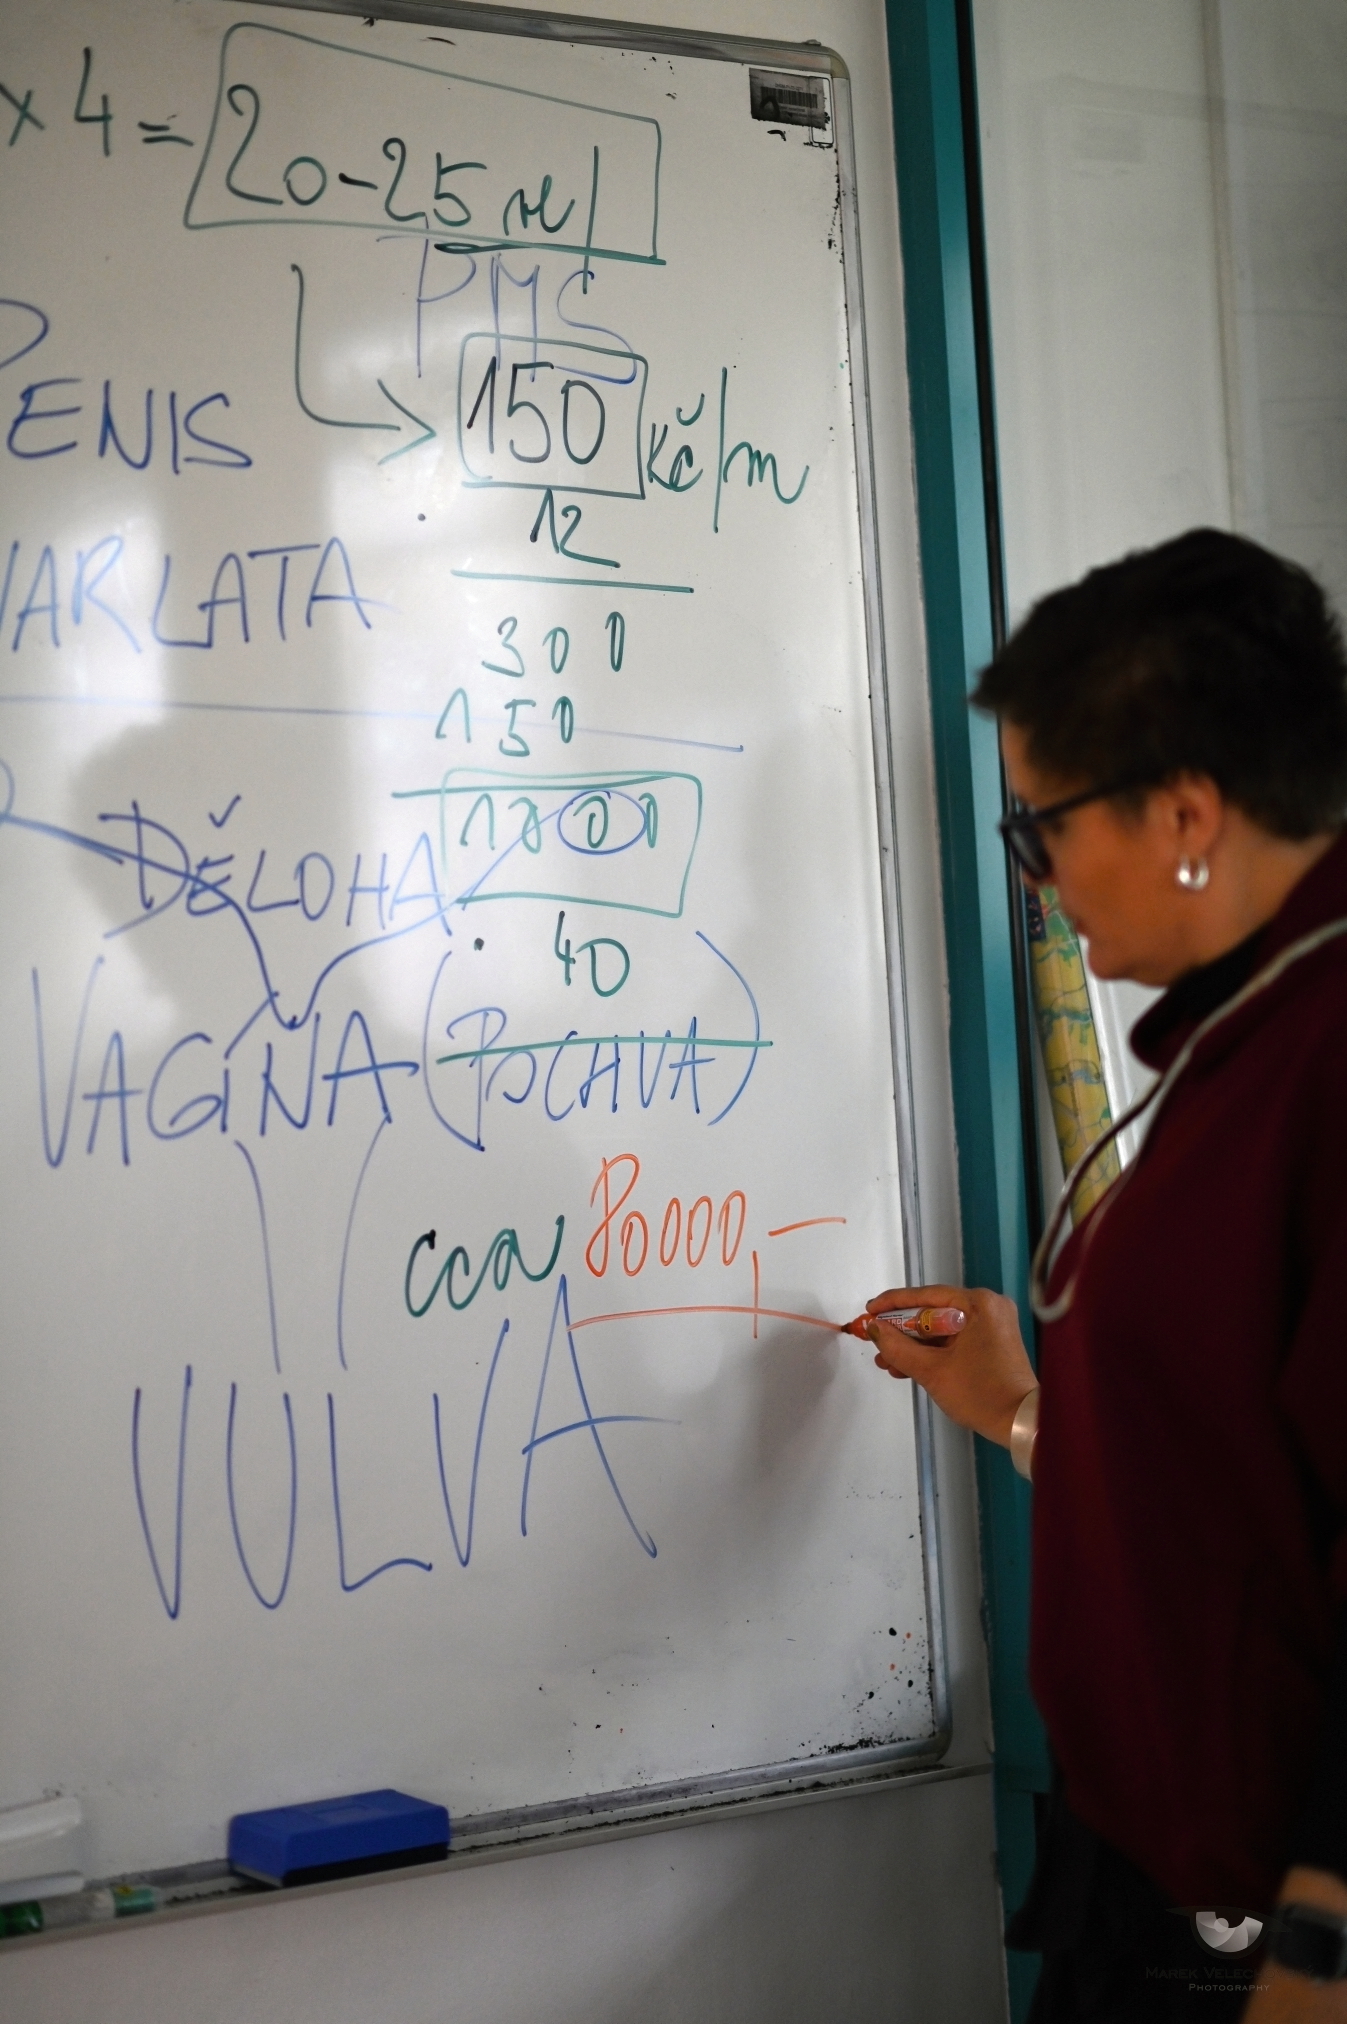 x 4 = 20-25
PMS
PENIS
150 Kč/m
12
VARLATA
300
150
DĚLOHA
1800
40
VAGINA (POCHVA)
cca 80000,-
VULVA
PHOTOGRAPHY